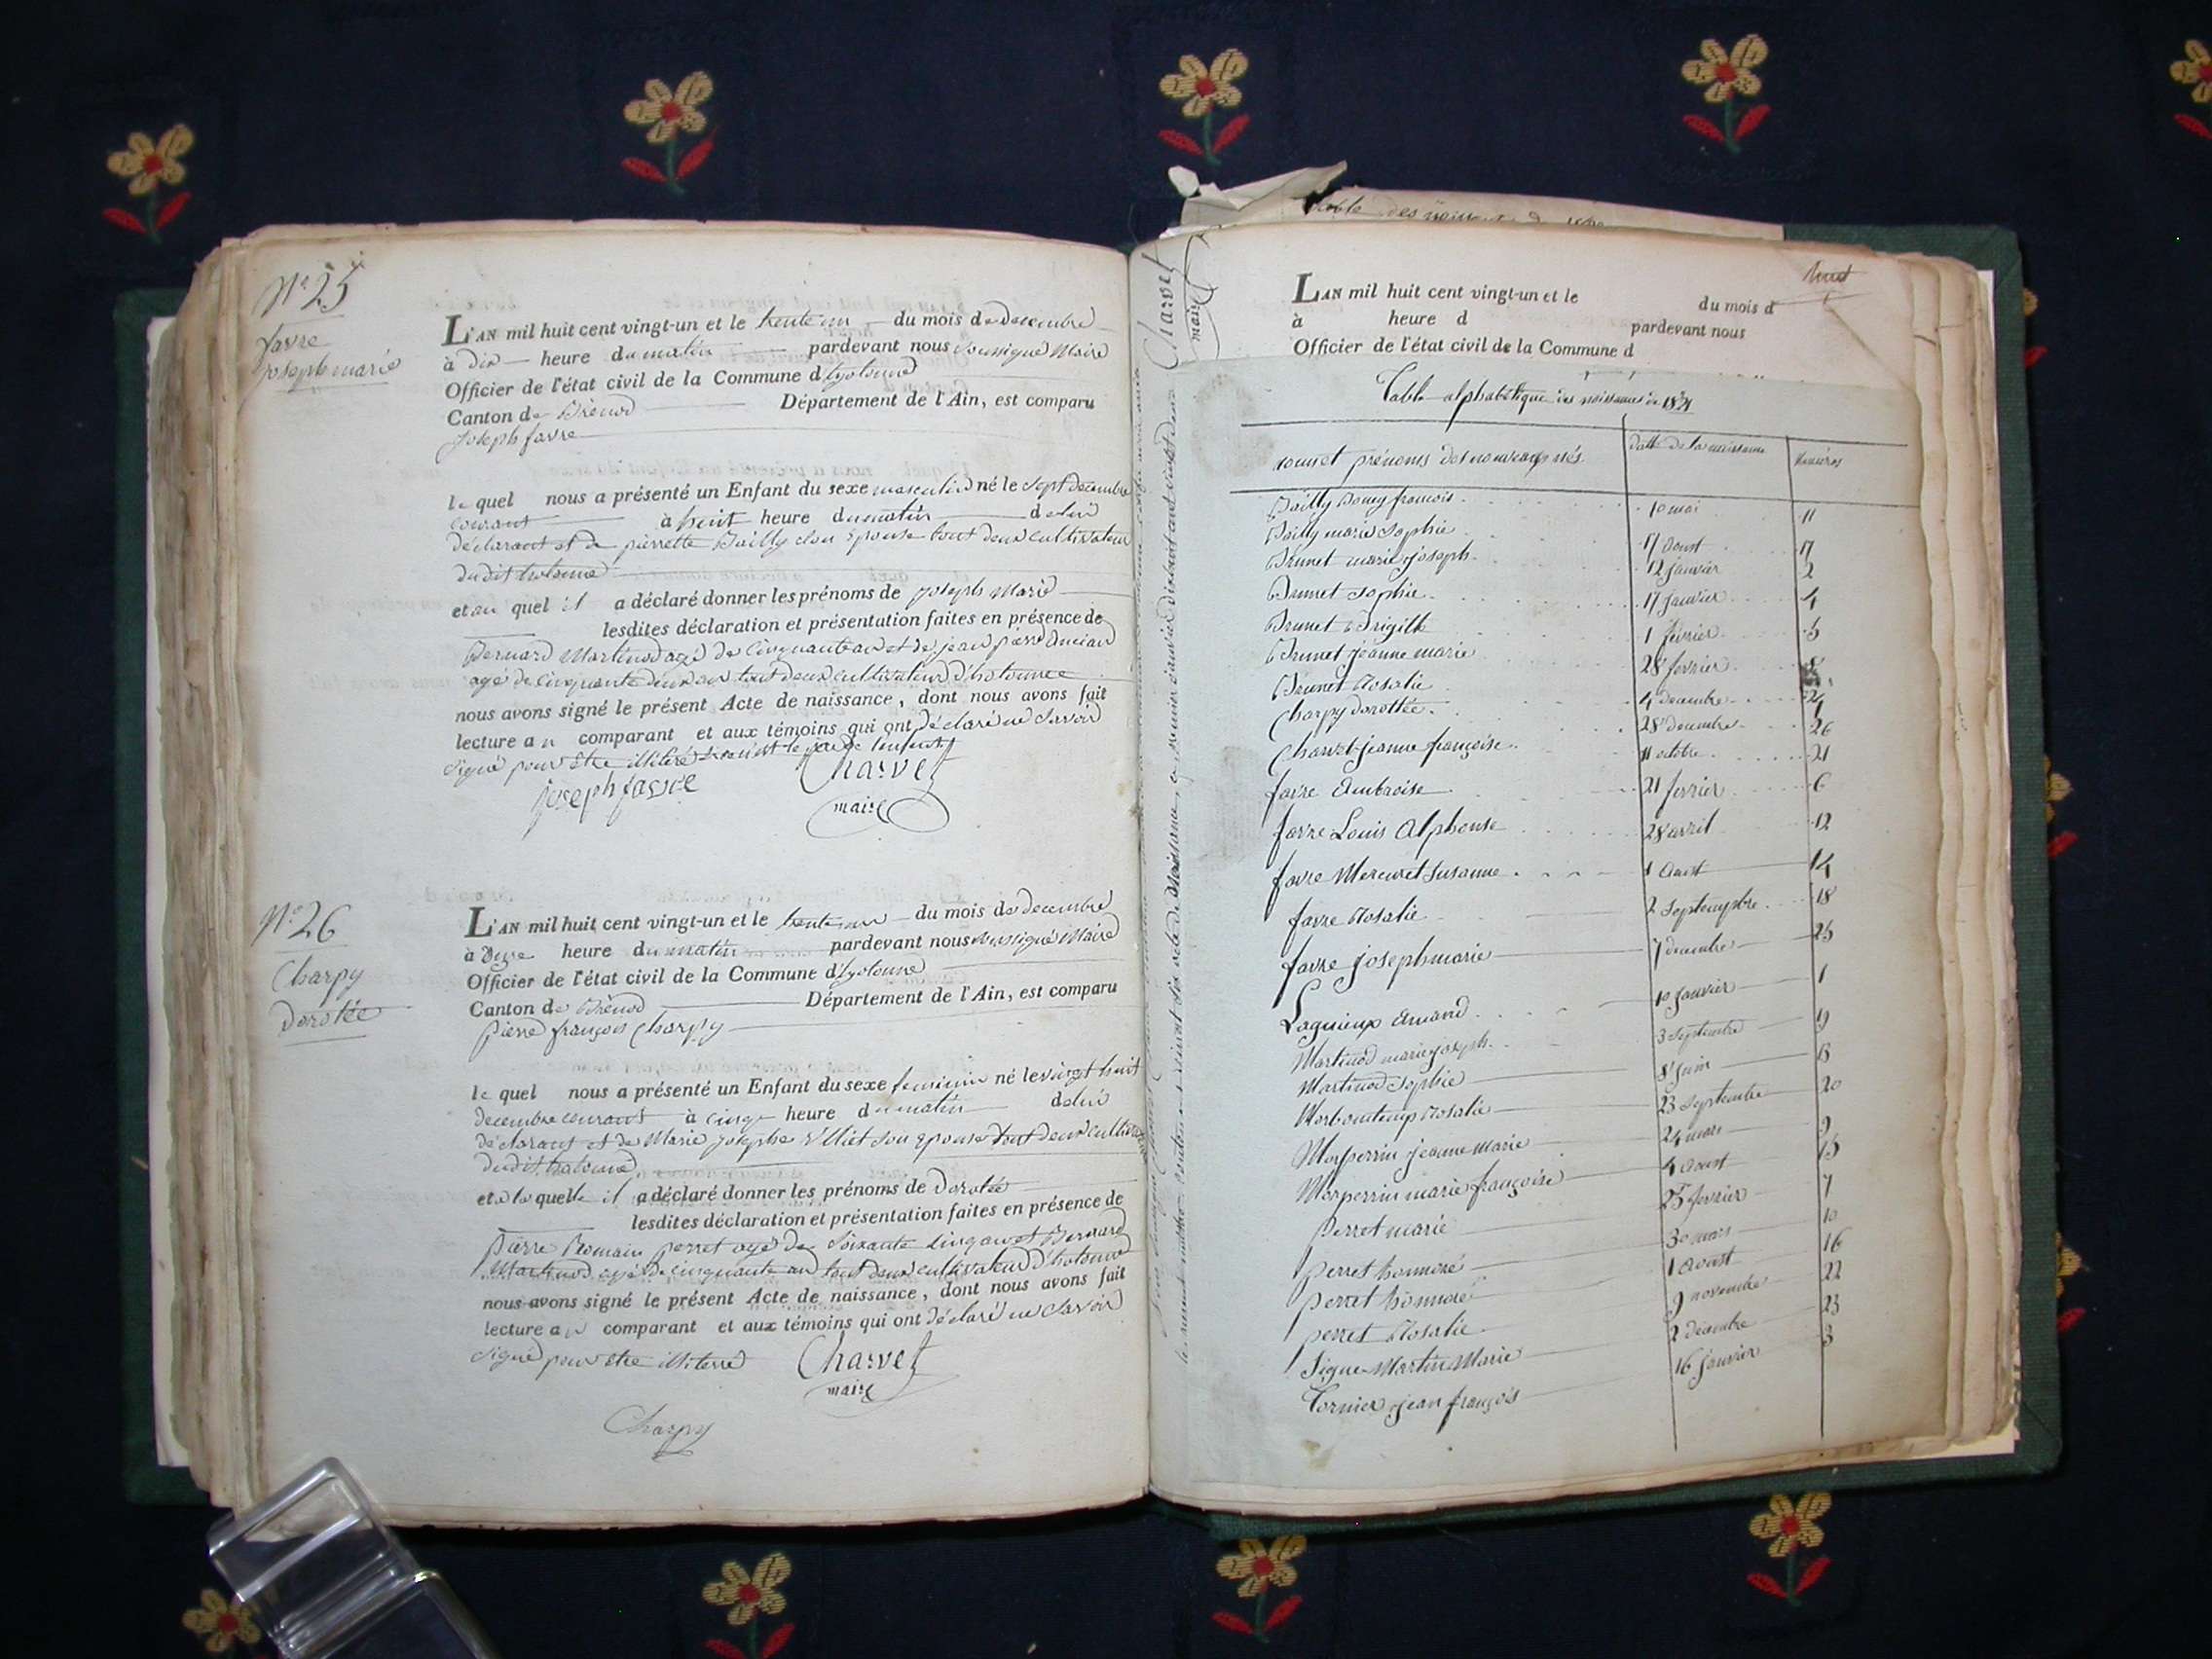 N° 25
favre
joseph marie
L'AN mil huit cent vingt-un et le trente un du mois de decembre
à dix heure du matin pardevant nous soussigné Maire
Officier de l'état civil de la Commune d'hotonne
Canton de Brénod Département de l'Ain, est comparu
Joseph favre
le quel nous a présenté un Enfant du sexe masculin né le sept decembre
courant à huit heure du matin de lui
déclarant et de pierrette Bailly son épouse tout deux cultivateur
dudit hotonne
et au quel il a déclaré donner les prénoms de joseph Marie
lesdites déclaration et présentation faites en présence de
Bernard Martinod agé de cinquante an et de jean pierre
agé de cinquante deux an tout deux cultivateur d'hotonne
nous avons signé le présent Acte de naissance, dont nous avons fait
lecture au comparant et aux témoins qui ont déclaré ne savoir
signé pour être illiteré le père de l'enfant
joseph favre Charvet
maire
N° 26
Charpy
Dorotée
L'AN mil huit cent vingt-un et le trente un du mois de decembre
à onze heure du matin pardevant nous soussigné Maire
Officier de l'état civil de la Commune d'hotonne
Canton de Brénod Département de l'Ain, est comparu
pierre françois Charpy
le quel nous a présenté un Enfant du sexe feminin né le vingt huit
decembre courant à cinq heure du matin de lui
déclarant et de Marie josephe son épouse tout deux cultivateur
dudit hotonne
et a la quelle il a déclaré donner les prénoms de Dorotée
lesdites déclaration et présentation faites en présence de
pierre Romain perret agé de soixante cinq an et Bernard
Martinod agé de cinquante an tout deux cultivateur d'hotonne
nous avons signé le présent Acte de naissance, dont nous avons fait
lecture au comparant et aux témoins qui ont déclaré ne savoir
signé pour être illiterré Charvet
maire
Charpy
Charvet
maire
Table des
huit
LAN mil huit cent vingt-un et le du mois d
à heure d pardevant nous
Officier de l'état civil de la Commune d
Table alphabétique des naissances de 1821
noms et prénoms des nouveaux nés datte de la naissance Numéros
Bailly françois 10 mai 11
Bailly marie Sophie 17 Aoust 17
Brunet marie joseph 12 janvier 2
Brunet Sophie 17 janvier 4
Brunet Brigitte 1 février 5
Brunet jeanne marie 28 fevrier 8
Brunet Rosalie 4 decembre 24
Charpy dorothée 28 decembre 26
Charvet jeanne françoise 11 octobre 21
favre Ambroise 21 fevrier 6
favre Louis Alphonse 28 avril 12
favre Mercuret Susanne 1 Aoust 14
favre Rosalie 2 Septempbre 18
favre joseph marie 7 decembre 25
Laguieux Amand 10 janvier 1
Martinod marie joseph 3 Septembre 19
Martinod Sophie 8 juin 13
Morbontemp Rosalie 23 Septembre 20
Morperrin jeanne Marie 24 mars 9
Morperrin marie françoise 4 Aoust 15
perret marie 25 fevrier 7
perret honnoré 30 mars 10
perret honnoré 1 Aoust 16
perret Rosalie 9 novembre 22
Sigue Martin Marie 2 decembre 23
Cornier jean françois 16 janvier 3